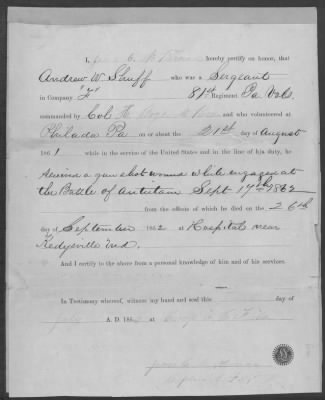 I, hereby certify on honor, that
Andrew W. Shuff who was a Sergeant
in Company "F" 81st Regiment Pa Vols
commanded by Col H. and who volunteered at
Philada Pa on or about the 21st day of August
1861 while in the service of the United States and in the line of his duty, he
received a gun shot wound while engaged at
the Battle of Antietam Sept 17th 1862
from the effects of which he died on the 26th
day of September 1862 at Hospital near
Kedysville Md.
And I certify to the above from a personal knowledge of him and of his services.
In Testimony whereof, witness my hand and seal this day of
A. D. 186 at